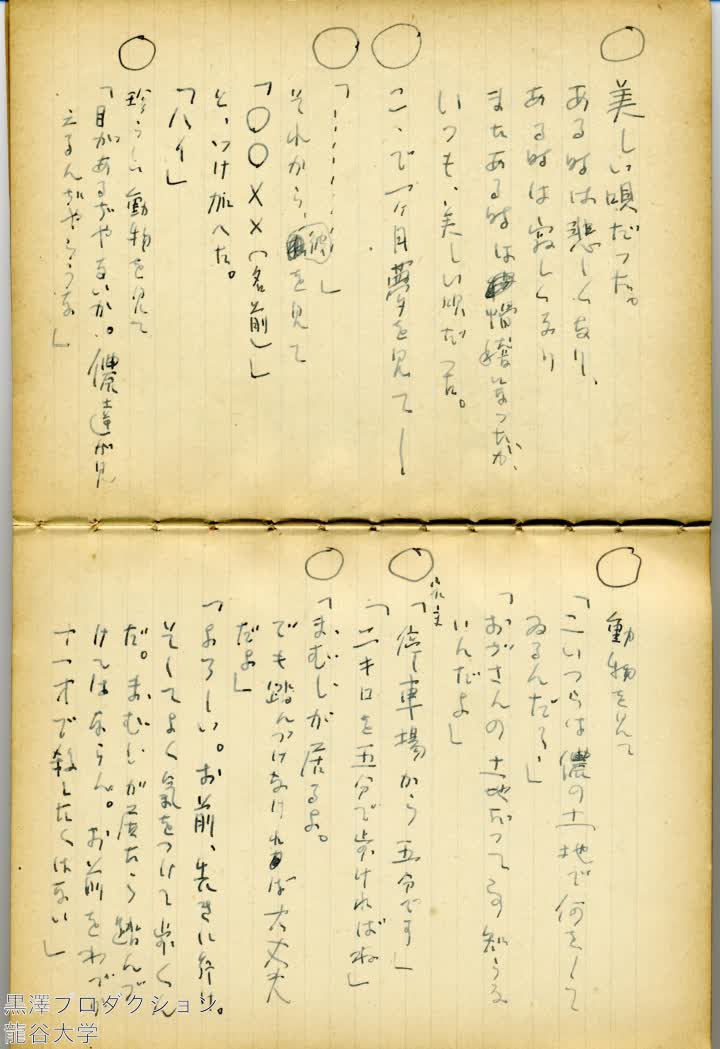 ○ 美しい唄だった。
ある時は悲しくなり、
ある時は寂しくなり
またある時は 滑稽になったが、
いつも、美しい唄だった。
○ こゝで一ヶ月夢を見てー
○ 「‥‥‥‥‥‥」
それから、(彼)を見て
「○○××(名前)」
と、つけ加へた。
「ハイ」
○ 珍らしい動物を見て
「目があるぢやないか。儂達が見
えるんぢやらうな」
○ 動物を見て
「こいつらは儂の土地で何をして
ゐるんだろ、」
「おぢさんの土地だって事知らな
いんだよ」
○ 家主
「停車場から五分です」
「二キロを五分で歩ければね」
○ 「まむしが居るよ。
でも踏んづけなければ大丈夫
だよ」
「よろしい。お前、先きに行け。
そしてよく氣をつけて歩くん
だ。まむしが居たら踏んづ
けてはならん。お前をわづか
十一才で殺したくはない」
黒澤プロダクション
龍谷大学